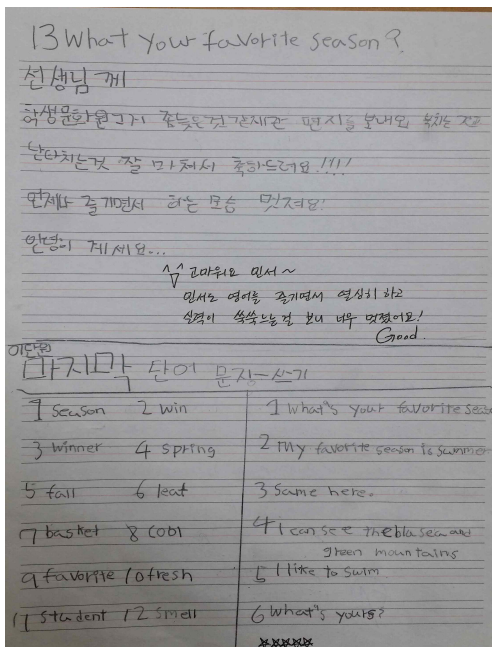 13 What your favorite season?
선생님께
학생문화원 좀 늦은것 같재만 편지를 보내요
난타치는것 잘 마쳐서 축하드려요!!!!
언제나 즐기면서 하는 모습 멋져요!
안녕이 계세요...
고마워요 민서~
민서도 영어를 즐기면서 열심히 하고
실력이 쑥쑥 느는 걸 보니 너무 멋졌어요!
Good.
이단원
마지막 단어 문장-쓰기
1 season 2 win
3 winner 4 spring
5 fall 6 leaf
7 basket 8 cobl
9 favorite 10 fresh
11 student 12 smell
1 What's your favorite seas
2 My favorite season is summer
3 Same here.
4 I can see the bla sea and
green mountains
5 I like to swim
6 What's yours?